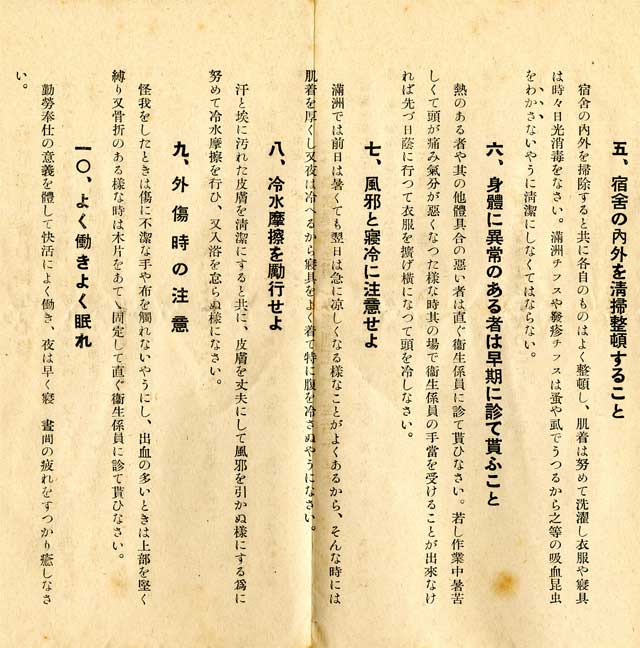 五、宿舍の內外を清掃整頓すること
宿舍の內外を掃除すると共に各自のものはよく整頓し、肌着は努めて洗濯し衣服や寢具
は時々日光消毒をなさい。滿洲チフスや發疹チフスは蚤や虱でうつるから之等の吸血昆虫
をわかさないやうに淸潔にしなくてはならない。
六、身體に異常のある者は早期に診て貰ふこと
熱のある者や其の他體具合の惡い者は直ぐ衞生係員に診て貰ひなさい。若し作業中暑苦
しくて頭が痛み氣分が惡くなつた樣な時其の場で衞生係員の手當を受けることが出來なけ
れば先づ日蔭に行つて衣服を擴げ橫になつて頭を冷しなさい。
七、風邪と寢冷に注意せよ
滿洲では前日は暑くても翌日は急に凉しくなる樣なことがよくあるから、そんな時には
肌着を厚くし又夜は冷へるから寢具をよく着て特に腹を冷さぬやうになさい。
八、冷水摩擦を勵行せよ
汗と埃に汚れた皮膚を淸潔にすると共に、皮膚を丈夫にして風邪を引かぬ樣にする爲に
努めて冷水摩擦を行ひ、又入浴を怠らぬ樣になさい。
九、外傷時の注意
怪我をしたときは傷に不潔な手や布を觸れないやうにし、出血の多いときは上部を堅く
縛り又骨折のある樣な時は木片をあてゝ固定して直ぐ衞生係員に診て貰ひなさい。
一〇、よく働きよく眠れ
勤勞奉仕の意義を體して快活によく働き、夜は早く寢 晝間の疲れをすつかり癒しなさ
い。